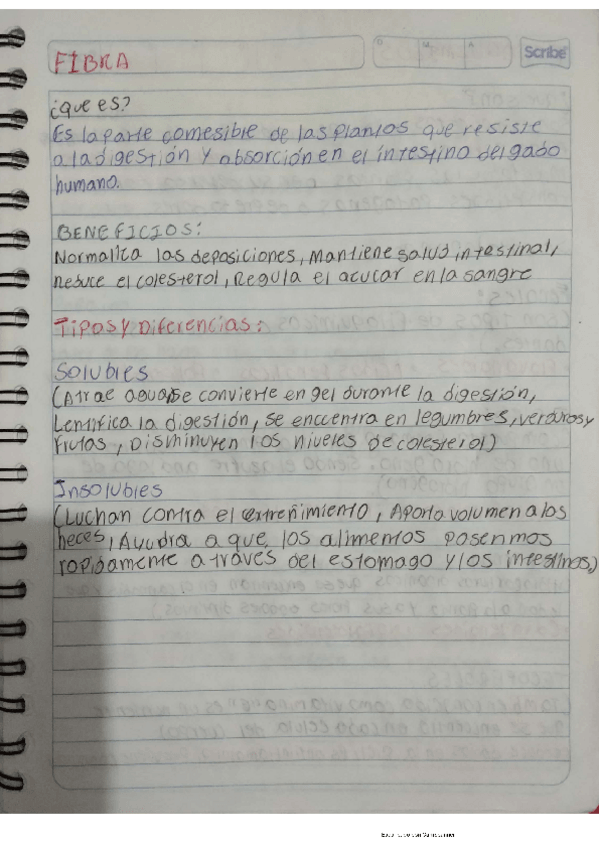 FIBRA
Scribe
¿que es?
Es la parte comesible de las plantas que resiste
a la digestión y absorción en el intestino delgado
humano.
BENEFICIOS:
Normaliza las deposiciones, Mantiene salud intestinal,
Reduce el colesterol, Regula el azucar en la sangre
Tipos y Diferencias:
Solubles
(Atrae agua, se convierte en gel durante la digestión,
Lentifica la digestión, se encuentra en legumbres, verduras y
frutas, Disminuyen los niveles de colesterol)
Insolubles
(Luchan contra el estreñimiento, Aporta volumen a los
heces, Ayudra a que los alimentos pasen mas
rapidamente a través del estomago y los intestinos.)